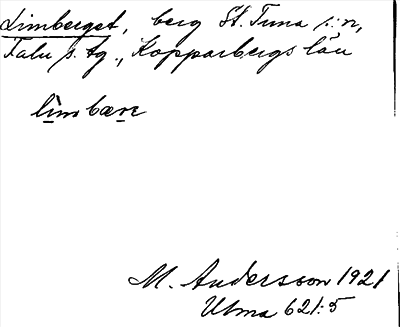 Limberget, berg St. Tuna s:n,
Falu s. tg., Kopparbergs län
lìmbære
M. Andersson 1921
Ulma 621:5